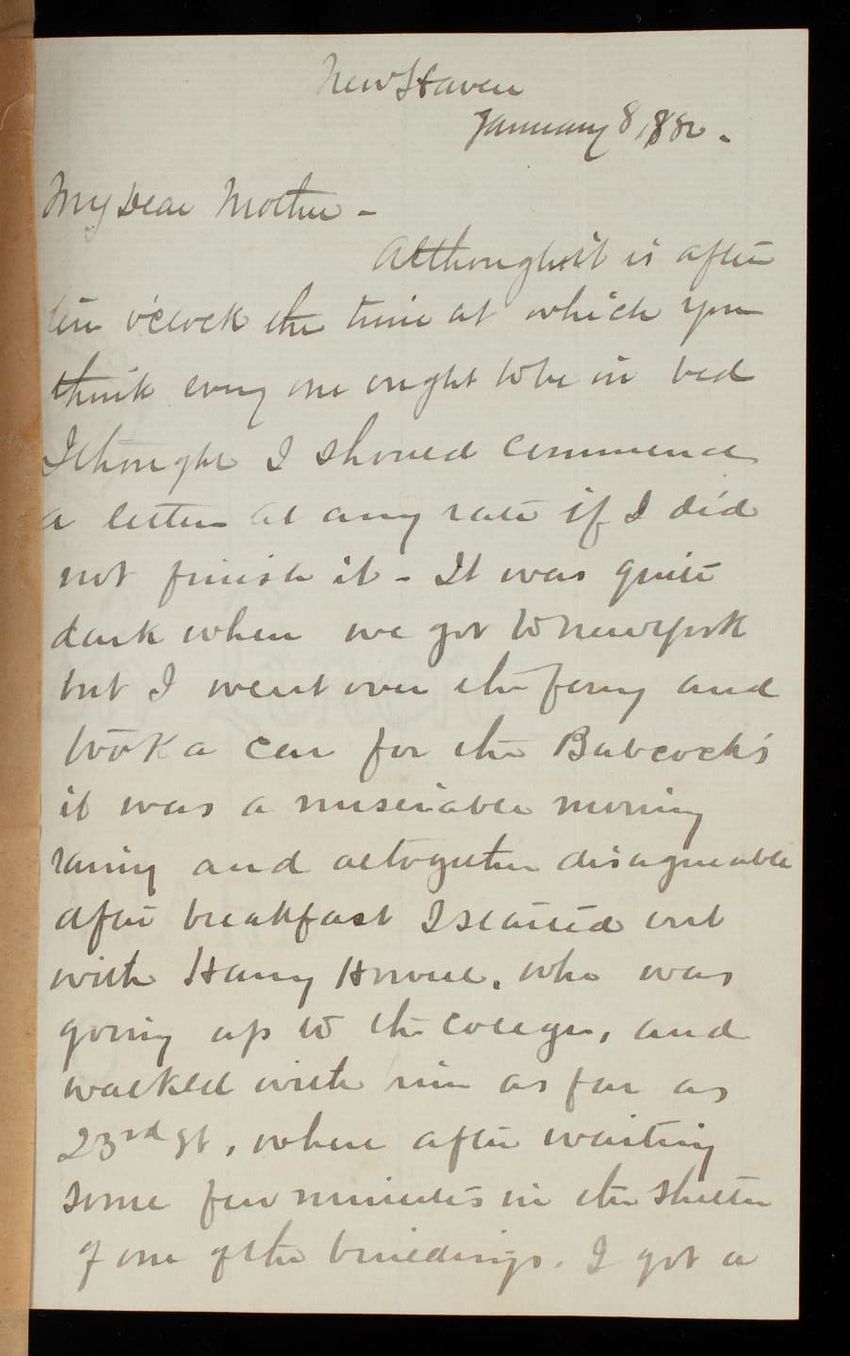 New Haven
January 8, 1880.
My Dear Mother -
Although it is after
ten o'clock the time at which you
think every one ought to be in bed
I thought I should commence
a letter at any rate if I did
not finish it - It was quite
dark when we got to New York
but I went over the ferry and
took a car for the Babcock's
it was a miserable morning
rainy and altogether disagreeable
after breakfast I started out
with Harry Howell, who was
going up to the college, and
walked with him as far as
23rd St, where after waiting
some few minutes in the shelter
of one of the buildings. I got a